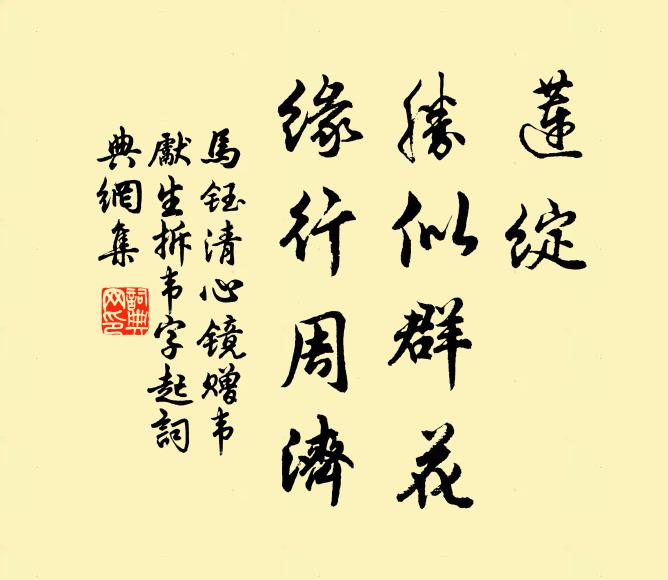 蓮綻
勝似群花
緣行周濟
馬鈺清心鏡赠韦
獻生拆韦字起詞
典網集
詞典
网印